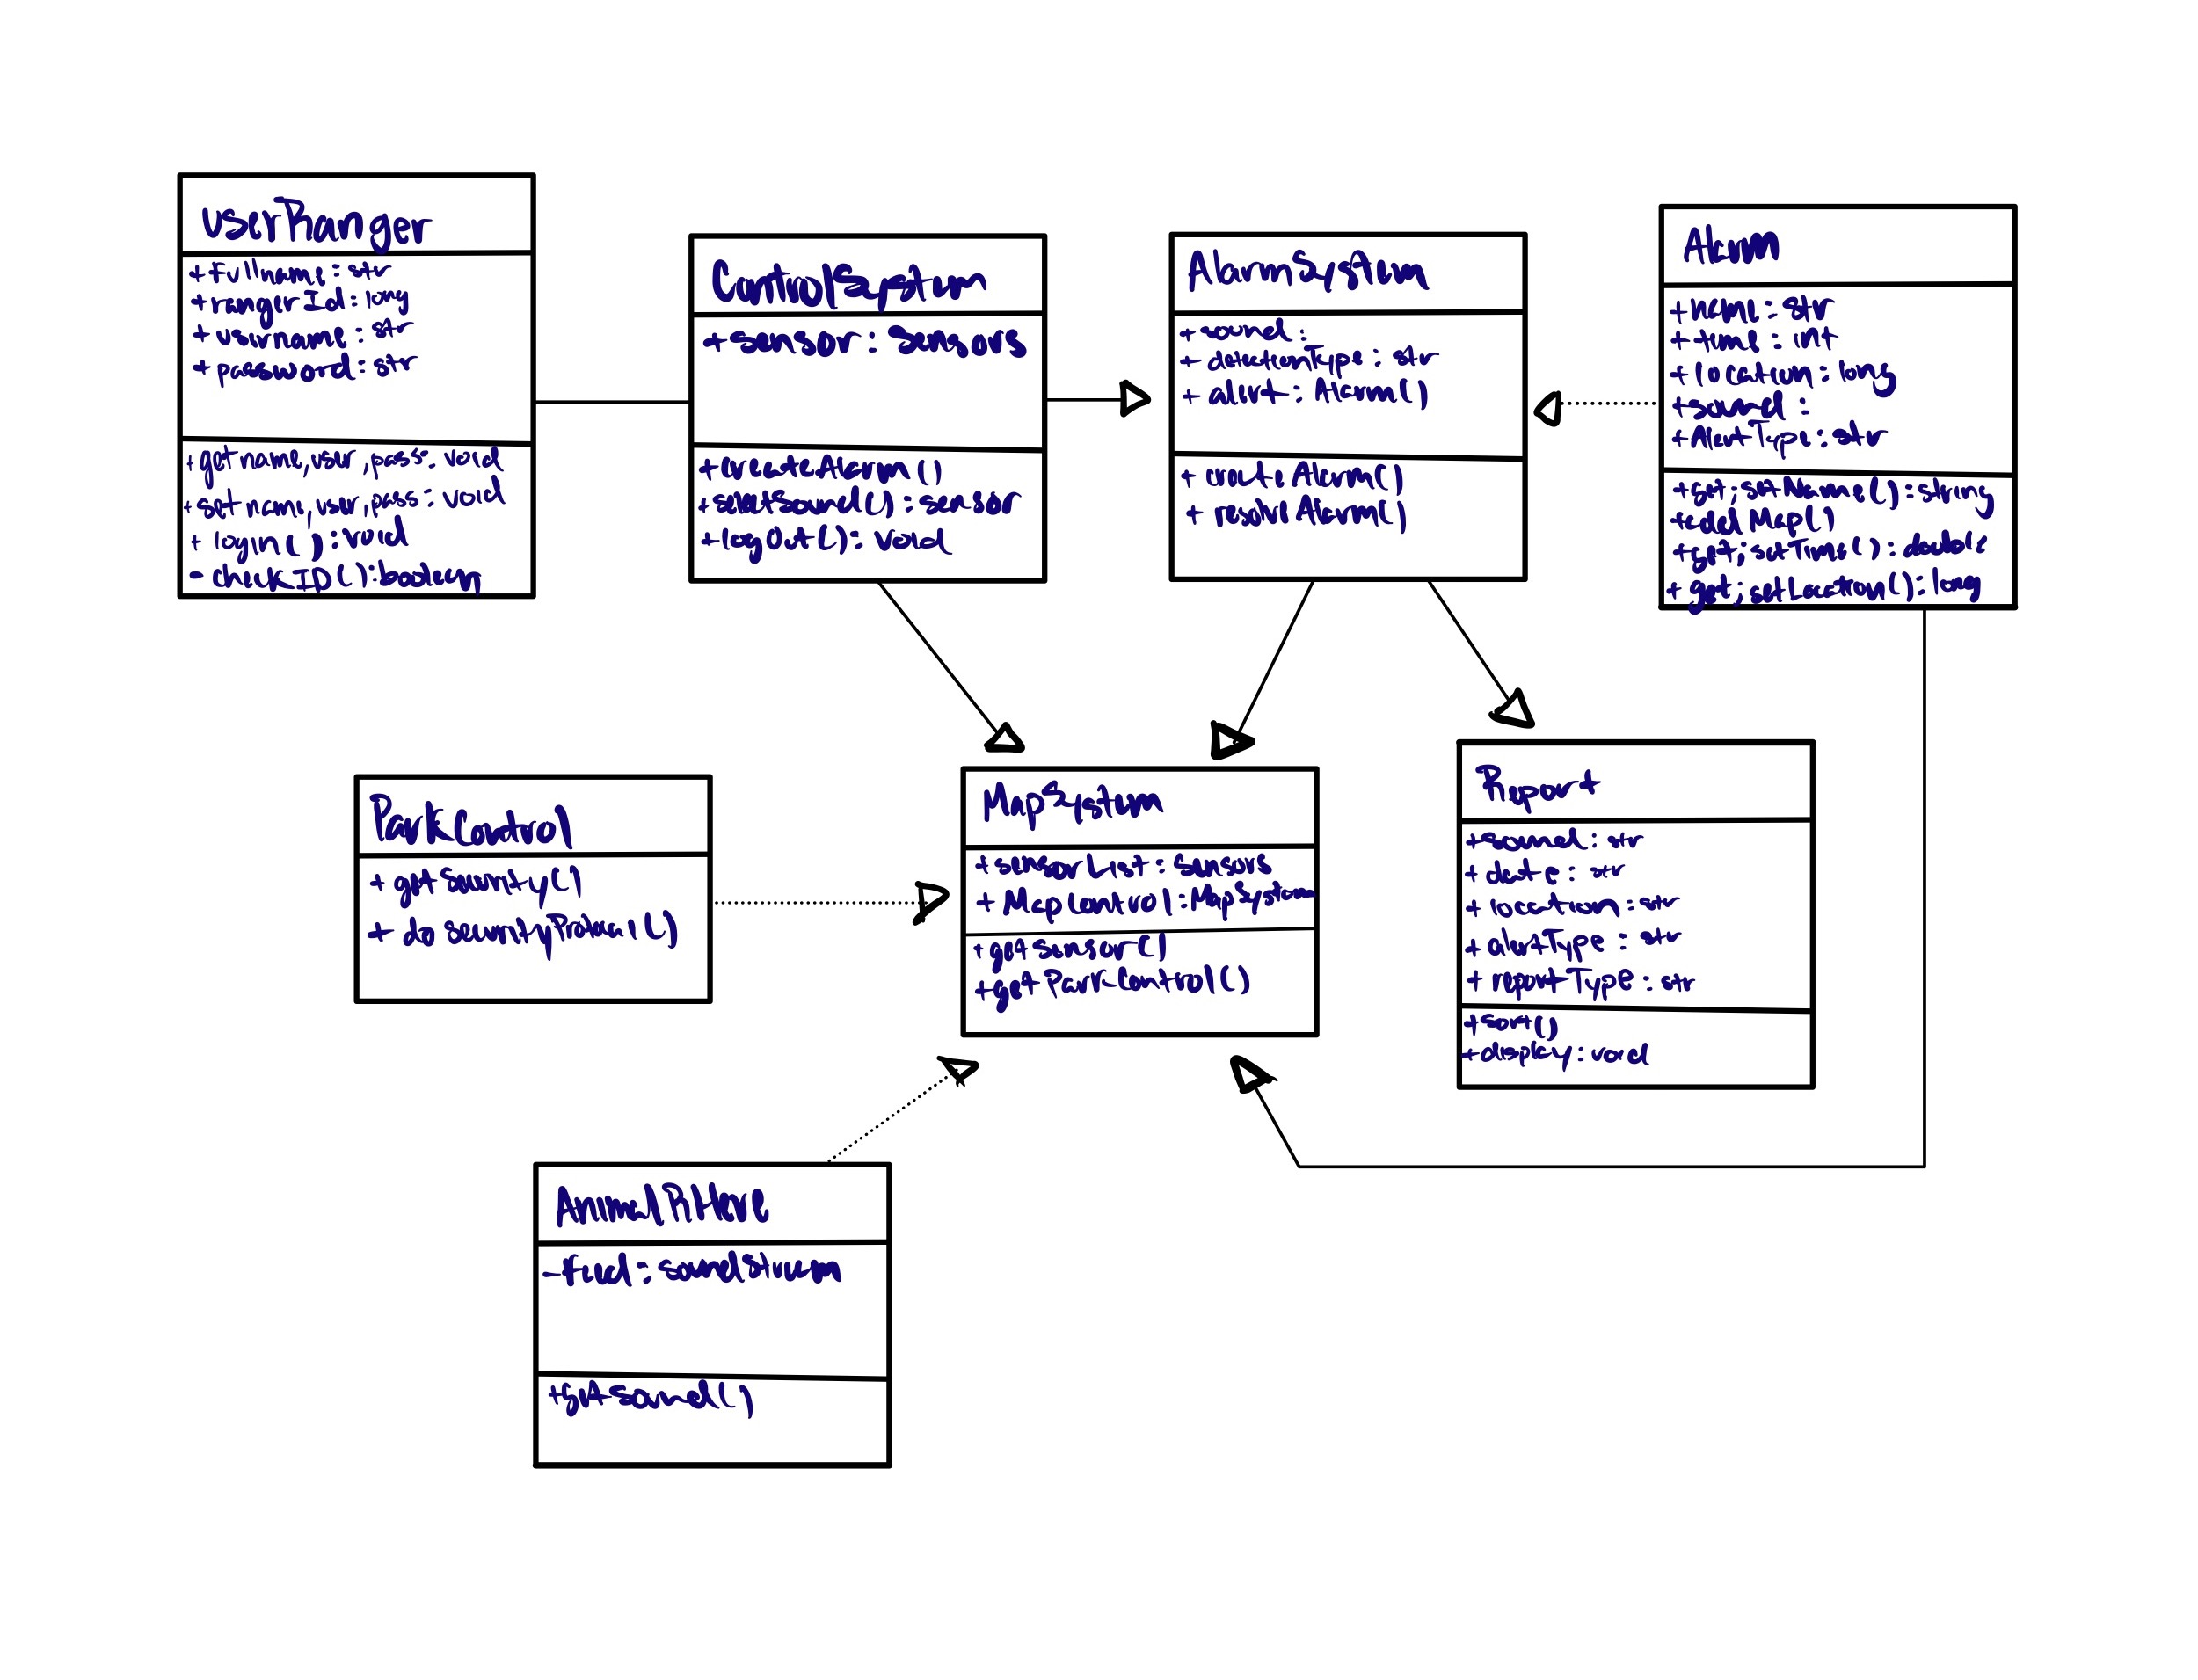 userRanger
+ fullname: str
+ rangerId: long
+ username: str
+ password: str
+ getname, user, pass: void
+ set name, user, pass: void
+ login(): void
- checkID(): boolean
ControlSystem
+ sensor: Sensors
+ createAlarm()
+ selectSound(): sensor
+ logOut(): void
AlarmSystem
+ sound:
+ detectionType: str
+ alert: Alarm()
+ create Alarm()
+ resolve Alarm()
Alarm
+ name: str
+ time: int
+ location: long
+ sound:
+ AlertType: str
+ get; setName(): string
+ add Map()
+ get; setTime(): double
+ get; setLocation(): long
ParkControl
+ getSecurity()
+ do securityProtocol()
MapSystem
+ sensorList: Sensors
+ MapControl: MapSystem
+ getSensor()
+ get ParkControl()
Report
+ sound: str
+ date: str
+ location: str
+ alertType: str
+ reportType: str
+ sort()
+ display: void
Animal R Here
- feed: soundStream
+ getSound()